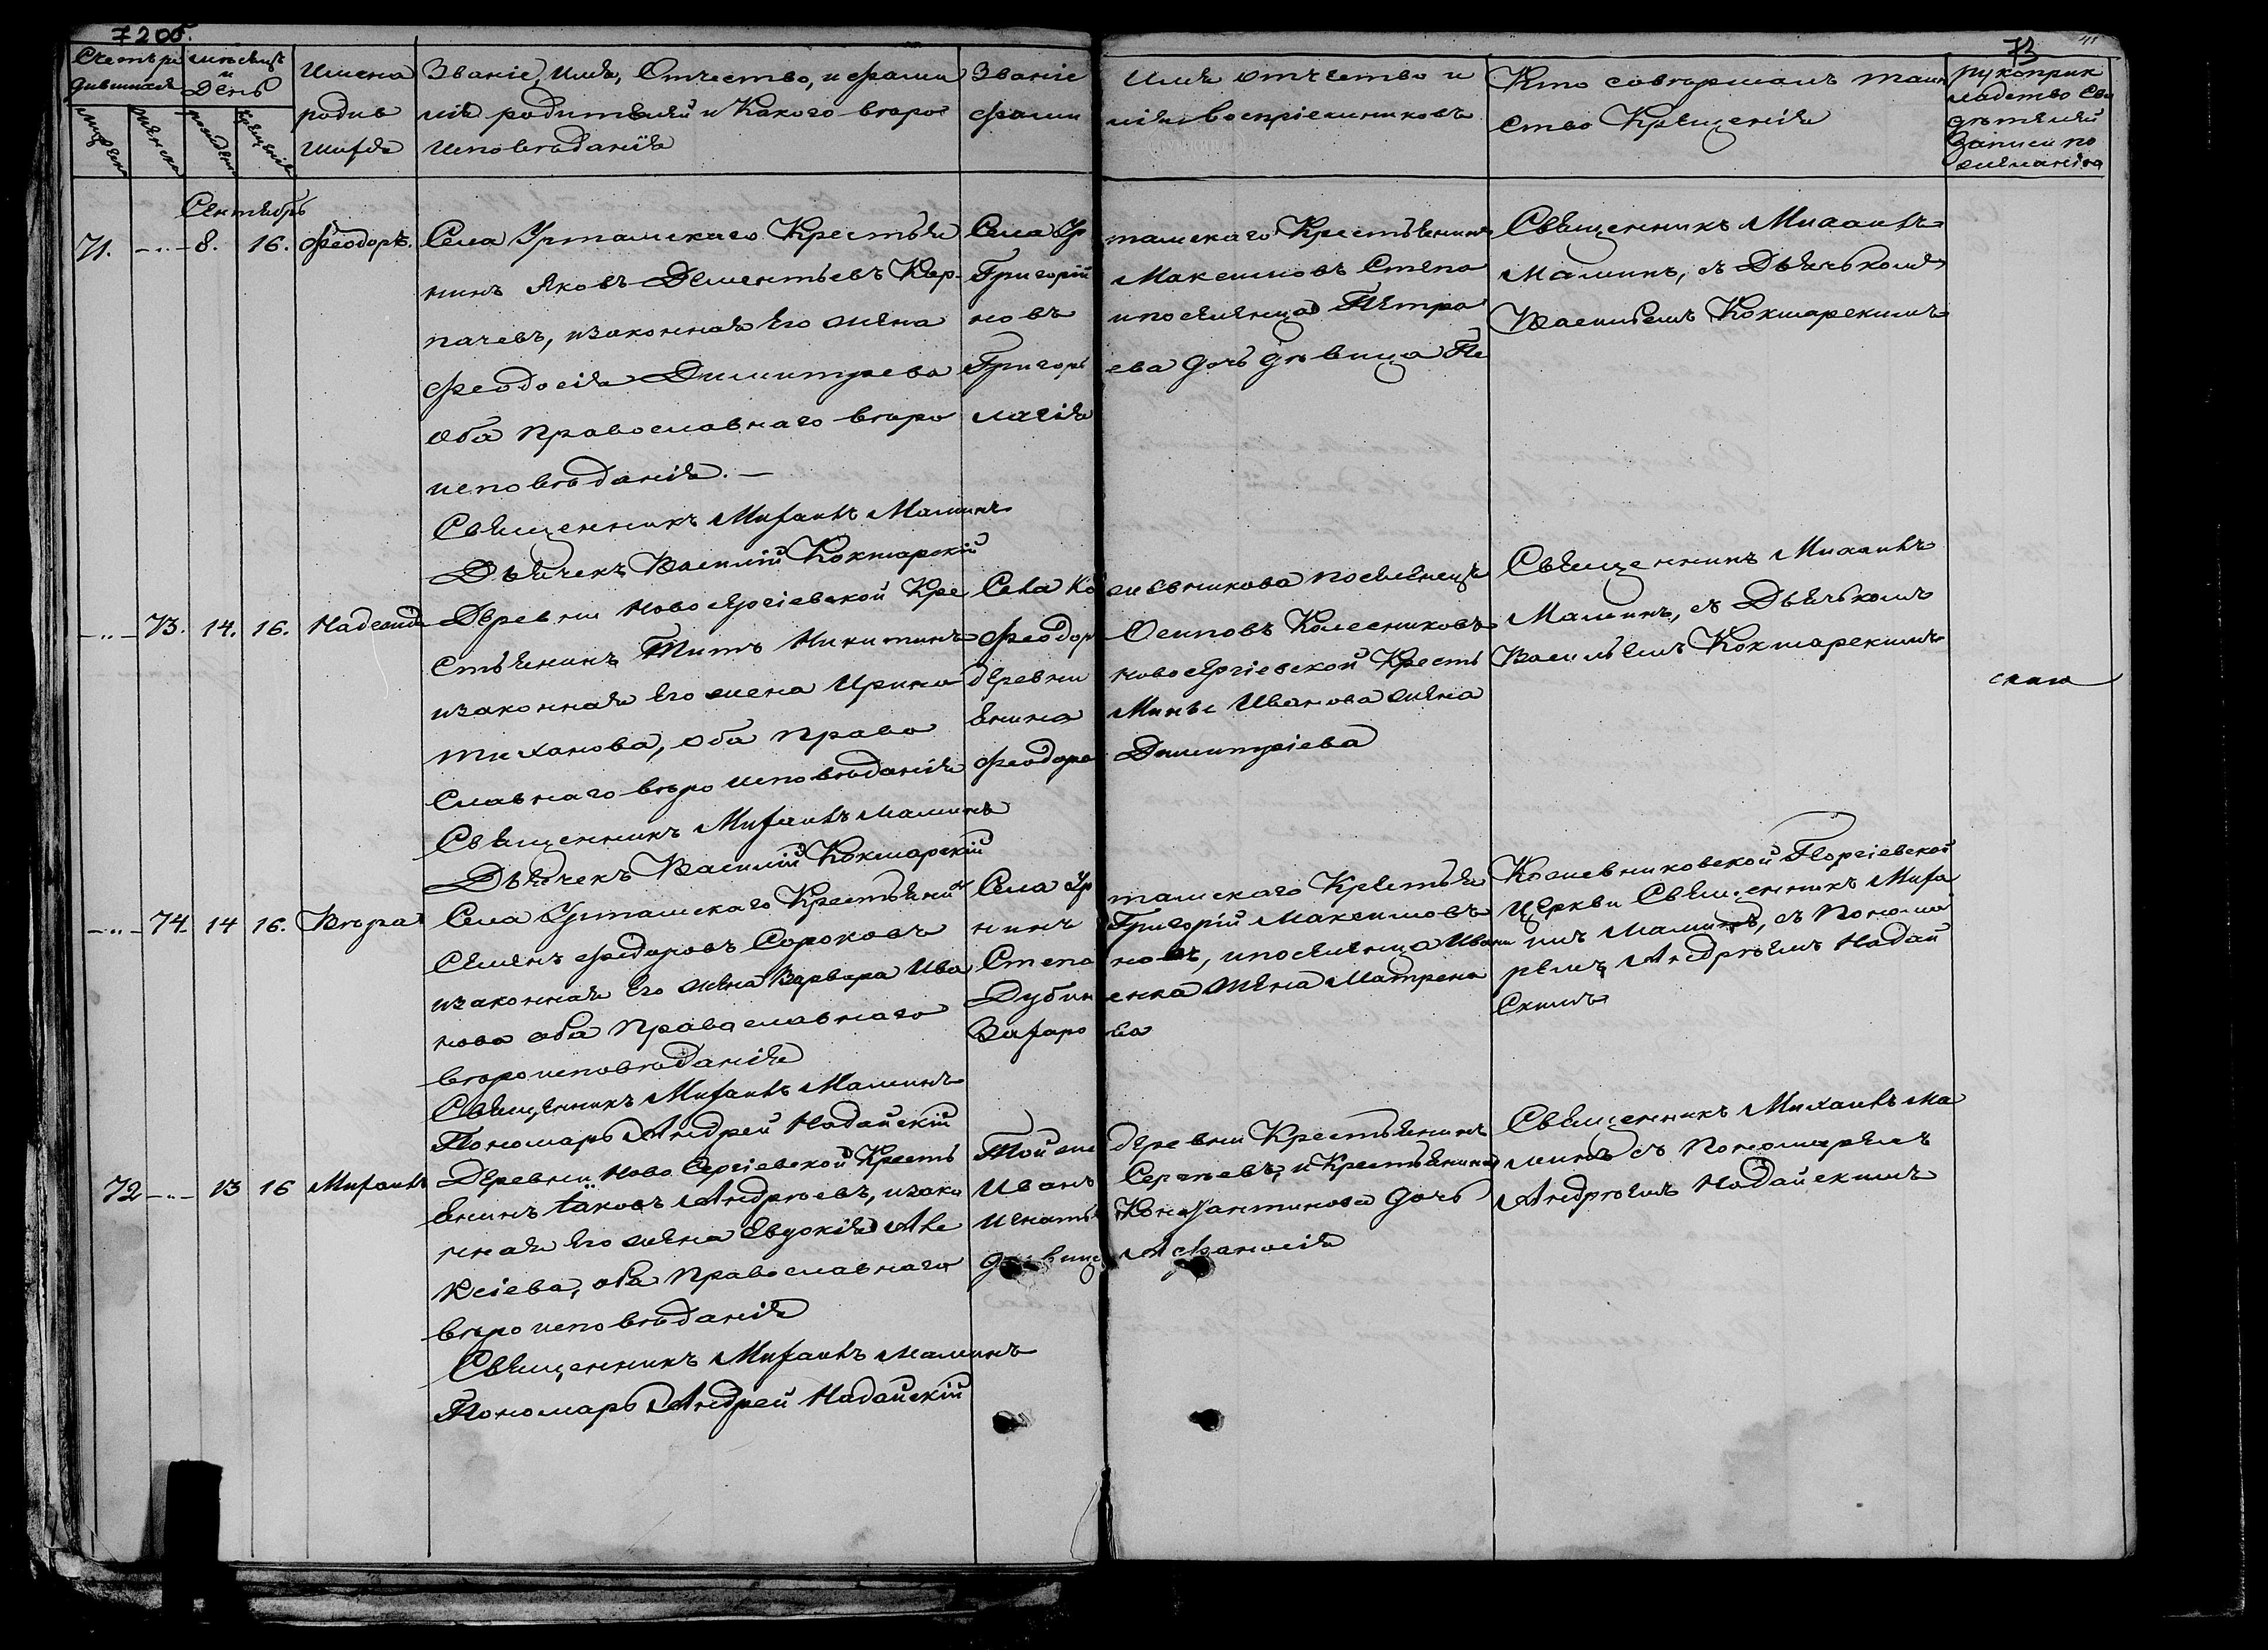 72 об.
73
Счетъ ро
дившихся
мѣсяцъ
и
день
мужеска
женска
рожденія
крещенія
Имена
родив
шихся
Званіе, Имя, Отчество, и фами
лія родителей и Какого вѣро
исповѣданія
Званіе Имя отчество и
фами лія воспріемниковъ
Кто совершалъ таин
ство Крещенія
рукоприк
ладство сви
дѣтелей
записи по
желанію
Сентябрь
71. -..- 8. 16. Феодоръ.
Села Уртамскаго Крестья
нинъ Яковъ Дементьевъ Кор-
пачевъ, изаконная Его жена
Феодосія Димитрева
оба православнаго вѣро
исповѣданія. —
Священникъ Михаилъ Малинъ
Дьячекъ Василій Кокшарскій
Села Ур тамскаго Крестьянинъ
Григорій Максимовъ Степа
новъ ипоселенца Петра
Григорь ева дочь дѣвица Пе
лагія
Священникъ Михаилъ
Малинъ, съ Дьячкомъ
Василіемъ Кокшарскимъ
-..- 73. 14. 16. Надежда
Деревни Новосергіевской Кре
стьянинъ Титъ Никитинъ
изаконная Его жена Ирина
Тиханова, оба право
славнаго вѣро исповѣданія
Священникъ Михаилъ Малинъ
Дьячекъ Василій Кокшарскій
Села Ко жевникова поселенецъ
Феодор Осиповъ Колесниковъ
деревни новосергіевской Кресть
янина Миньи Иванова жена
Феодора Димитріева
Священникъ Михаилъ
Малинъ, съ Дьячкомъ
Васильемъ Кокшарскимъ
-..- 74 14 16. Вѣра
Села Уртамскаго Крестьянинъ
Семенъ Федоровъ Сороковъ
изаконная Его жена Варвара Ива
нова оба Православнаго
вѣроисповѣданія
Священникъ Михаилъ Малинъ
Пономарь Андрей Надайскій
Села Ур тамскаго Крестья
нинъ Григорій Максимовъ
Степа новъ, ипоселенца Ивана
Дубин енка жена Матрена
Захаро ва
Кожевниковской Георгіевской
Церкви Священникъ Миха
илъ Малинъ, съ Понома
ремъ Андрѣемъ Надай
скимъ
72 -..- 13 16 Михаилъ
Деревни Ново Сергіевской Кресть
янинъ Іаковъ Андрѣевъ, изако
нная Его жена Евдокія Але
ксіева, оба Православнаго
вѣро исповѣданія
Священникъ Михаилъ Малинъ
Пономарь Андрей Надайскій
Той же деревни Крестьянинъ
Иванъ Сергѣевъ, и Крестьянина
Игнатья Константинова дочь
дѣвица Афанасія
Священникъ Михаилъ Ма
линъ съ Пономаремъ
Андрѣемъ Надайскимъ